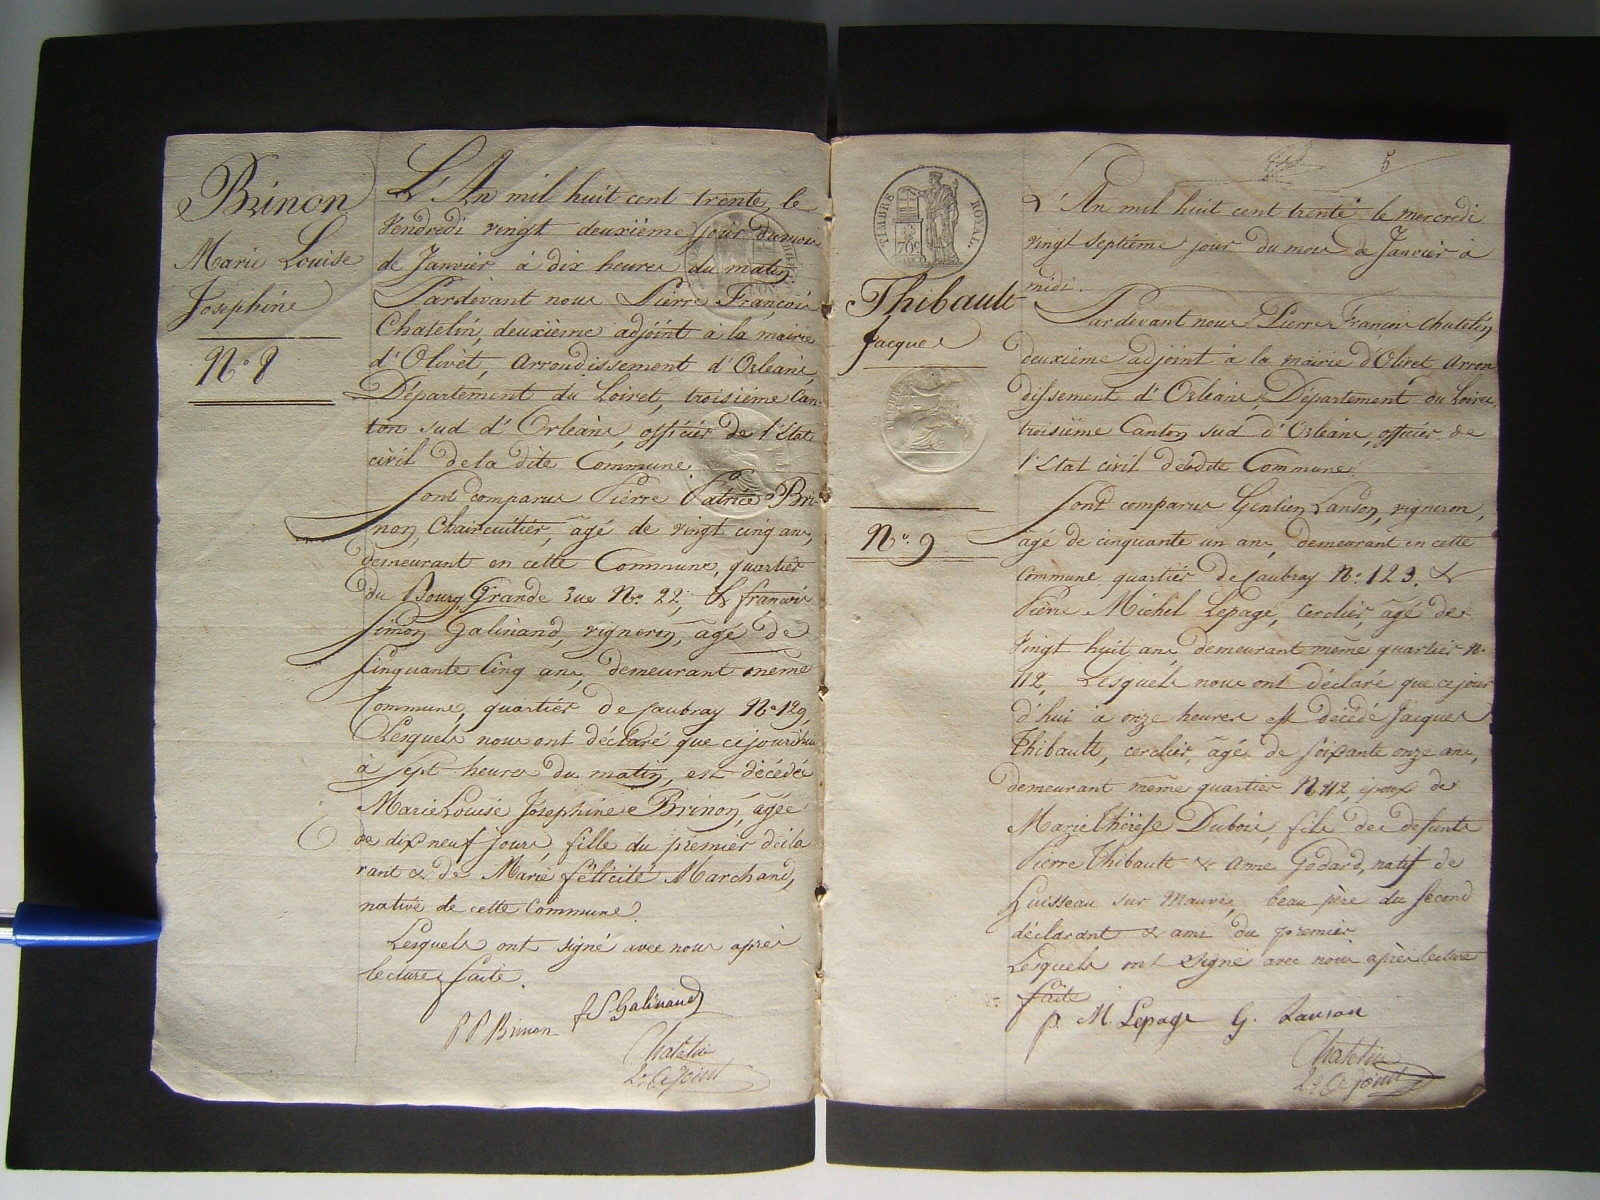 Brinon
Marie Louise
Josephine
N.º 8
L'An mil huit cent trente, le
Vendredi vingt deuxième jour du mois
de Janvier à dix heures du matin
Pardevant nous Pierre François
Chatelin, deuxième adjoint à la mairie
d'Olivet, Arrondissement d'Orléans,
Département du Loiret, troisième Can-
ton sud d'Orléans, officier de l'Etat
civil de la dite Commune
Sont comparus Pierre Patrice Bri-
non, Chaircuitier, âgé de vingt cinq ans,
demeurant en cette Commune, quartier
du Bourg, Grande rue N.º 22, & françois
Simon Galinand, vigneron, âgé de
Cinquante Cinq ans, demeurant même
Commune, quartier de Caubray N.º 129,
Lesquels nous ont déclaré que cejourd'hui
à sept heures du matin, est décédée
Marie Louise Joséphine Brinon, âgée
de dix neuf jours, fille du premier décla
rant & de Marie félicité Marchand,
native de cette Commune.
Lesquels ont signé avec nous après
lecture faite.
P P Brinon f. S. Galinand
Chatelin
2.e adjoint
5
TIMBRE ROYAL
70c
L'An mil huit cent trente le mercredi
vingt septième jour du mois de Janvier à
midi.
Thibault
Jacques
N.º 9
Pardevant nous Pierre François Chatelin,
deuxième adjoint à la mairie d'Olivet Arron
dissement d'Orléans, Département du Loiret,
troisième Canton sud d'Orléans, officier de
l'Etat civil de ladite Commune.
Sont comparus Gentien Lanson, vigneron,
âgé de cinquante un ans, demeurant en cette
Commune, quartier de Caubray N.º 123, &
Pierre Michel Lepage, cerclier, âgé de
Vingt huit ans demeurant même quartier N.º
112, Lesquels nous ont déclaré que cejour
d'hui à onze heures est décédé Jacques
Thibault, cerclier, âgé de soixante onze ans,
demeurant même quartier N.º 112, époux de
Marie Thérèse Dubois, fils de defunts
Pierre Thibault & Anne Godard, natif de
Huisseau sur Mauve, beau père du second
déclarant & ami du premier
Lesquels ont signé avec nous après lecture
faite
p. M. Lepage G. Lanson
Chatelin
2.e adjoint